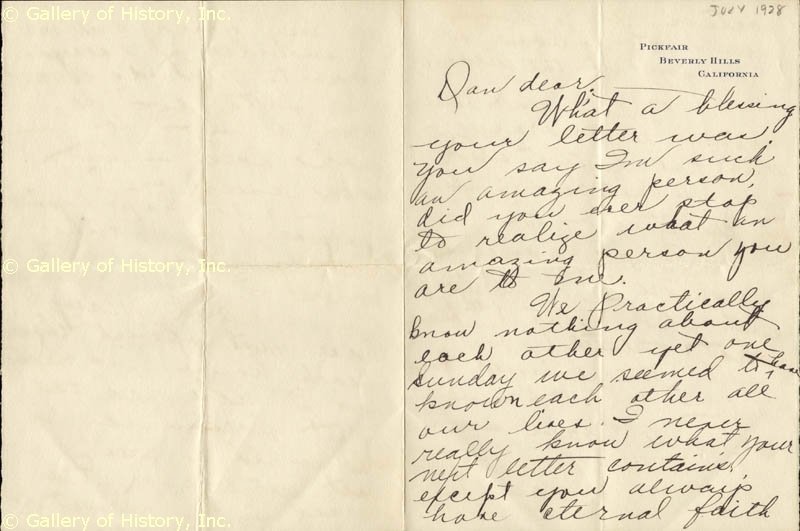 © Gallery of History, Inc.
JULY 1928
PICKFAIR
BEVERLY HILLS
CALIFORNIA
Dan dear,
What a blessing
your letter was.
You say I'm such
an amazing person,
did you ever stop
to realize what an
amazing person you
are to me.
We practically
know nothing about
each other yet one
Sunday we seemed to have
known each other all
our lives. I never
really know what your
next letter contains,
except you always
have eternal faith
© Gallery of History, Inc.
© Gallery of History, Inc.